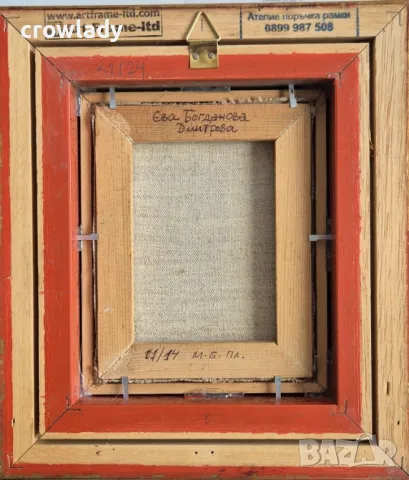 www.artframe-ltd.com
crowlady
Ателие поръчка рамки
0899 987 508
21/24
Ева Богданова
Дмитрова
11/14 м.б. пл.
BAZAR